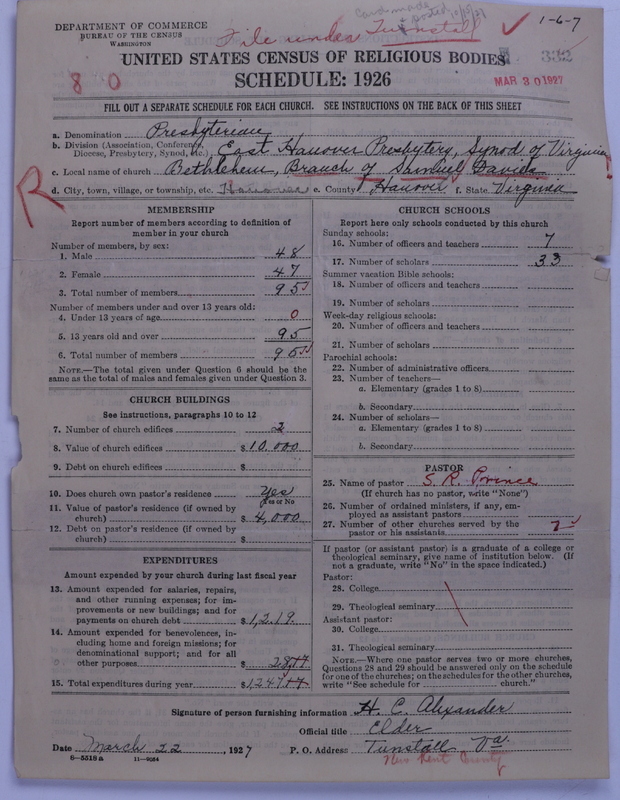 DEPARTMENT OF COMMERCE
BUREAU OF THE CENSUS
WASHINGTON
Card made
& posted
File under Tunstall ✓
1-6-7
332
UNITED STATES CENSUS OF RELIGIOUS BODIES
8 0
SCHEDULE: 1926
MAR 30 1927
FILL OUT A SEPARATE SCHEDULE FOR EACH CHURCH. SEE INSTRUCTIONS ON THE BACK OF THIS SHEET
a. Denomination Presbyterian
b. Division (Association, Conference, Diocese, Presbytery, Synod, etc.) East Hanover Presbytery, Synod of Virginia
c. Local name of church Bethlehem, Branch of Samuel Davies
d. City, town, village, or township, etc. Hanover e. County Hanover f. State Virginia
R
MEMBERSHIP
Report number of members according to definition of
member in your church
Number of members, by sex:
1. Male 48
2. Female 47
3. Total number of members 95
Number of members under and over 13 years old:
4. Under 13 years of age 0
5. 13 years old and over 95
6. Total number of members 95
NOTE.—The total given under Question 6 should be the
same as the total of males and females given under Question 3.
CHURCH BUILDINGS
See instructions, paragraphs 10 to 12
7. Number of church edifices 2
8. Value of church edifices $10,000
9. Debt on church edifices $
10. Does church own pastor's residence Yes
Yes or No
11. Value of pastor's residence (if owned by
church) $4,000
12. Debt on pastor's residence (if owned by
church) $
EXPENDITURES
Amount expended by your church during last fiscal year
13. Amount expended for salaries, repairs,
and other running expenses; for im-
provements or new buildings; and for
payments on church debt $1,219.
14. Amount expended for benevolences, in-
cluding home and foreign missions; for
denominational support; and for all
other purposes $
15. Total expenditures during year $
CHURCH SCHOOLS
Report here only schools conducted by this church
Sunday schools:
16. Number of officers and teachers 7
17. Number of scholars 33
Summer vacation Bible schools:
18. Number of officers and teachers
19. Number of scholars
Week-day religious schools:
20. Number of officers and teachers
21. Number of scholars
Parochial schools:
22. Number of administrative officers
23. Number of teachers—
a. Elementary (grades 1 to 8)
b. Secondary
24. Number of scholars—
a. Elementary (grades 1 to 8)
b. Secondary
PASTOR
25. Name of pastor S. R. Prince
(If church has no pastor, write "None")
26. Number of ordained ministers, if any, em-
ployed as assistant pastors
27. Number of other churches served by the
pastor or his assistants
If pastor (or assistant pastor) is a graduate of a college or
theological seminary, give name of institution below. (If
not a graduate, write "No" in the space indicated.)
Pastor:
28. College
29. Theological seminary
Assistant pastor:
30. College
31. Theological seminary
NOTE.—Where one pastor serves two or more churches,
Questions 28 and 29 should be answered only on the schedule
for one of the churches; on the schedules for the other churches,
write "See schedule for church."
Signature of person furnishing information H. C. Alexander
Official title Elder
Date March 22, 1927 P. O. Address Tunstall Va.
8—5518a 11—9064
New Kent County